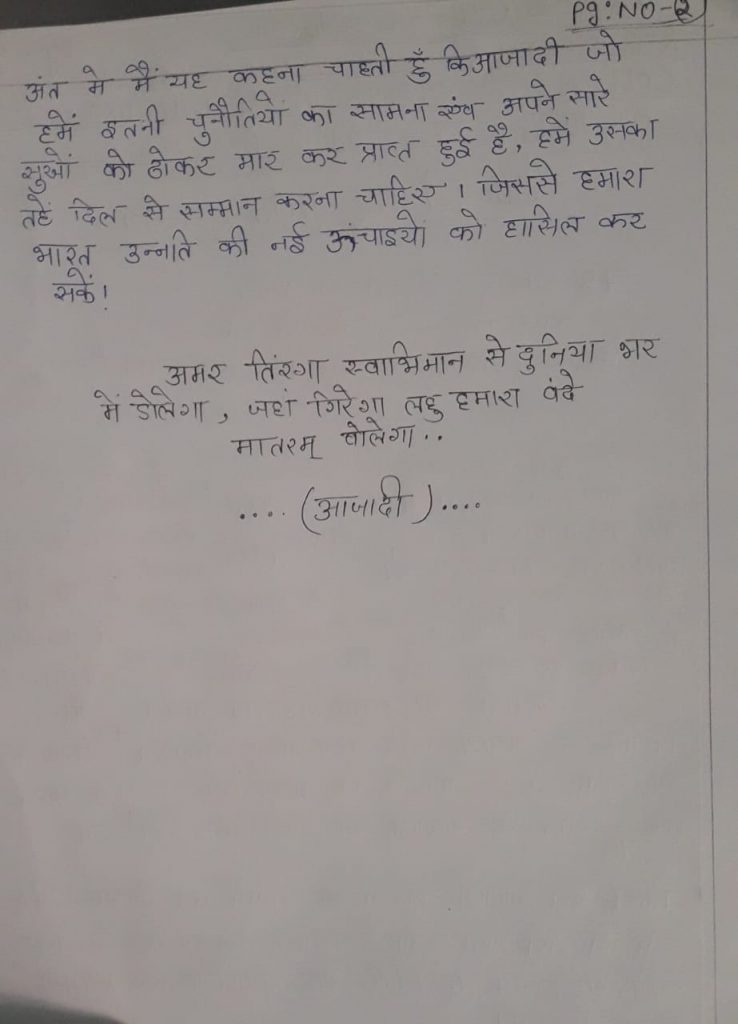 Pg: NO-2
अंत मे मैं यह कहना चाहती हूँ कि आजादी जो
हमें इतनी चुनौतियों का सामना एंव अपने सारे
सुखों को ठोकर मार कर प्राप्त हुई है, हमें उसका
तहें दिल से सम्मान करना चाहिए। जिससे हमारा
भारत उन्नति की नई ऊंचाइयो को हासिल कर
सकें।
अमर तिंरगा स्वाभिमान से दुनिया भर
में डोलेगा, जहां गिरेगा लहु हमारा वंदे
मातरम् बोलेगा..
.... (आजादी) ....